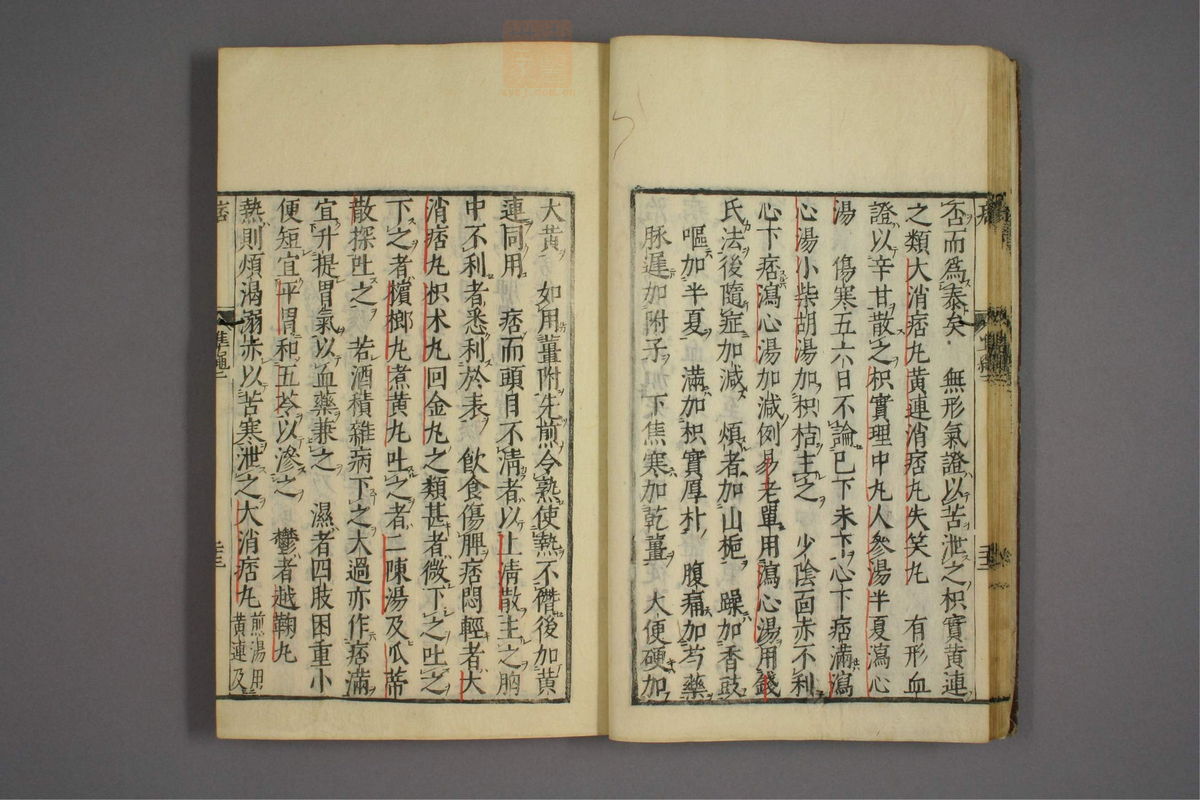 否而爲泰矣 無形氣證以苦泄之枳實黃連
之類大消痞丸黃連消痞丸失笑丸 有形血
證以辛甘散之枳實理中丸人參湯半夏瀉心
湯 傷寒五六日不論已下未下心下痞滿瀉
心湯小柴胡湯加枳桔主之 少陰面赤不利
心下痞瀉心湯加減例易老單用瀉心湯用錢
氏法後隨症加減 煩者加山梔 躁加香豉
嘔加半夏 滿加枳實厚朴 腹痛加芍藥
脉遲加附子 下焦寒加乾薑 大便硬加
大黃 如用薑附先煎令熟使熱不僭後加黃
連同用 痞而頭目不清者以上清散主之胸
中不利者悉利於表 飲食傷脾痞悶輕者大
消痞丸枳术丸回金丸之類甚者微下之吐之
下之者檳榔丸煮黃丸吐之者二陳湯及瓜蒂
散探吐之 若酒積雜病下之太過亦作痞滿
宜升提胃氣以血藥兼之 濕者四肢困重小
便短宜平胃和五苓以滲之 鬱者越鞠丸
熱則煩渴溺赤以苦寒泄之大消痞丸煎湯用黃連及
準繩